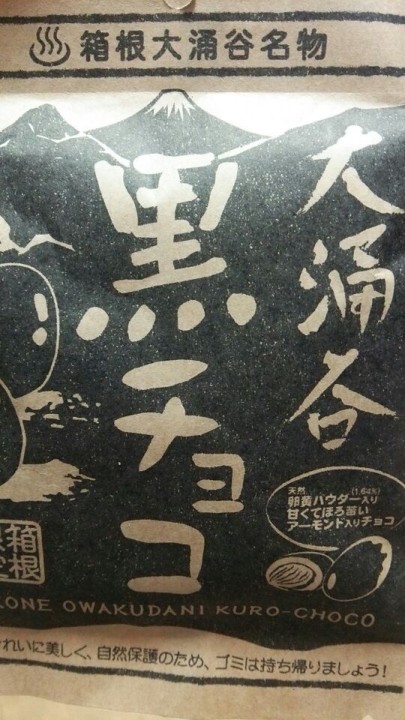 箱根大涌谷名物
大涌谷
黒チョコ
天然 (1.64%)
卵黄パウダー入り
甘くてほろ苦い
アーモンド入りチョコ
箱根
LONE OWAKUDANI KURO-CHOCO
れいに美しく、自然保護のため、ゴミは持ち帰りましょう!